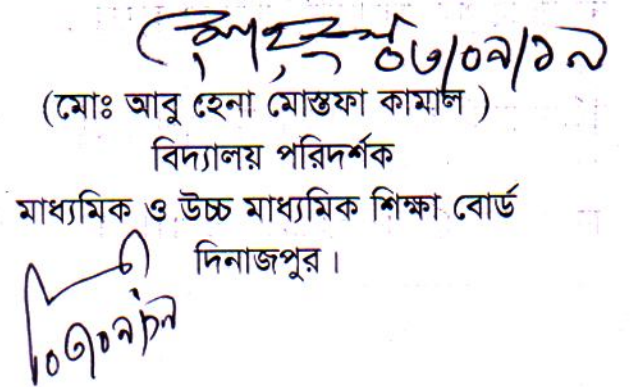 ০৩/০৯/১৯
(মোঃ আবু হেনা মোস্তফা কামাল )
বিদ্যালয় পরিদর্শক
মাধ্যমিক ও উচ্চ মাধ্যমিক শিক্ষা বোর্ড
দিনাজপুর।